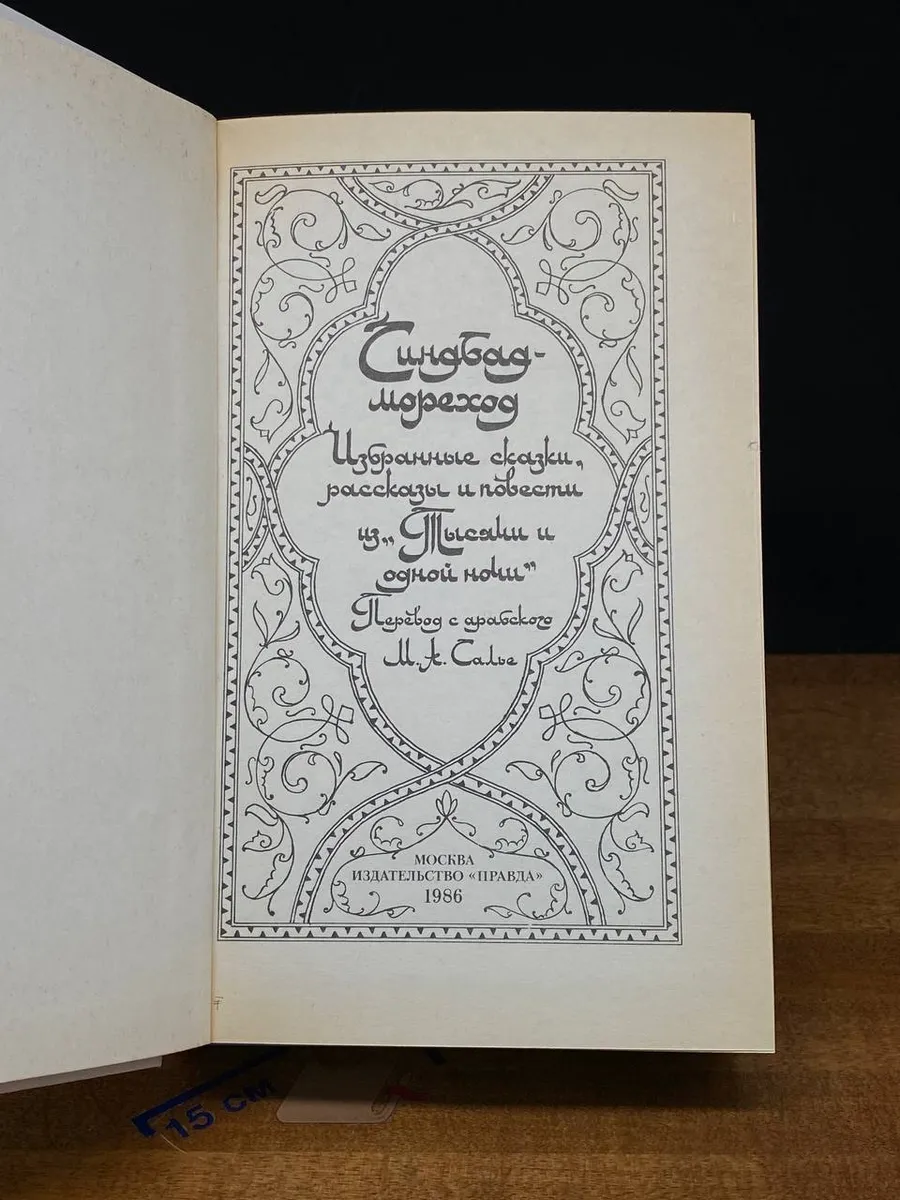 Синдбад-
мореход
Избранные сказки,
рассказы и повести
из „Тысячи и
одной ночи“
Перевод с арабского
М. А. Салье
МОСКВА
ИЗДАТЕЛЬСТВО «ПРАВДА»
1986
15 см